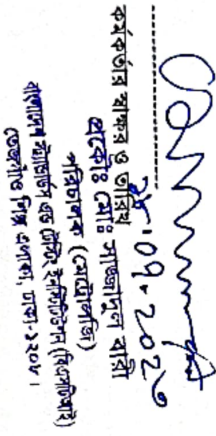 কর্মকর্তার স্বাক্ষর ও তারিখ
প্রকৌঃ মোঃ সাজ্জাদুল বারী
পরিচালক (মেট্রোলজি)
বাংলাদেশ স্ট্যান্ডার্ডস এন্ড টেস্টিং ইনস্টিটিউশন (বিএসটিআই)
তেজগাঁও শিল্প এলাকা, ঢাকা-১২০৮।